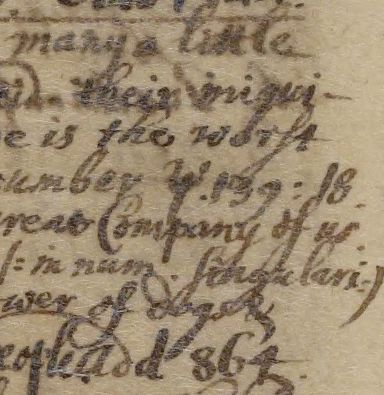 many a little
their iniqui-
e is the worst
umber ψ. 139: 18.
reat Company of us
in num. singulari.)
wer of dogs
864